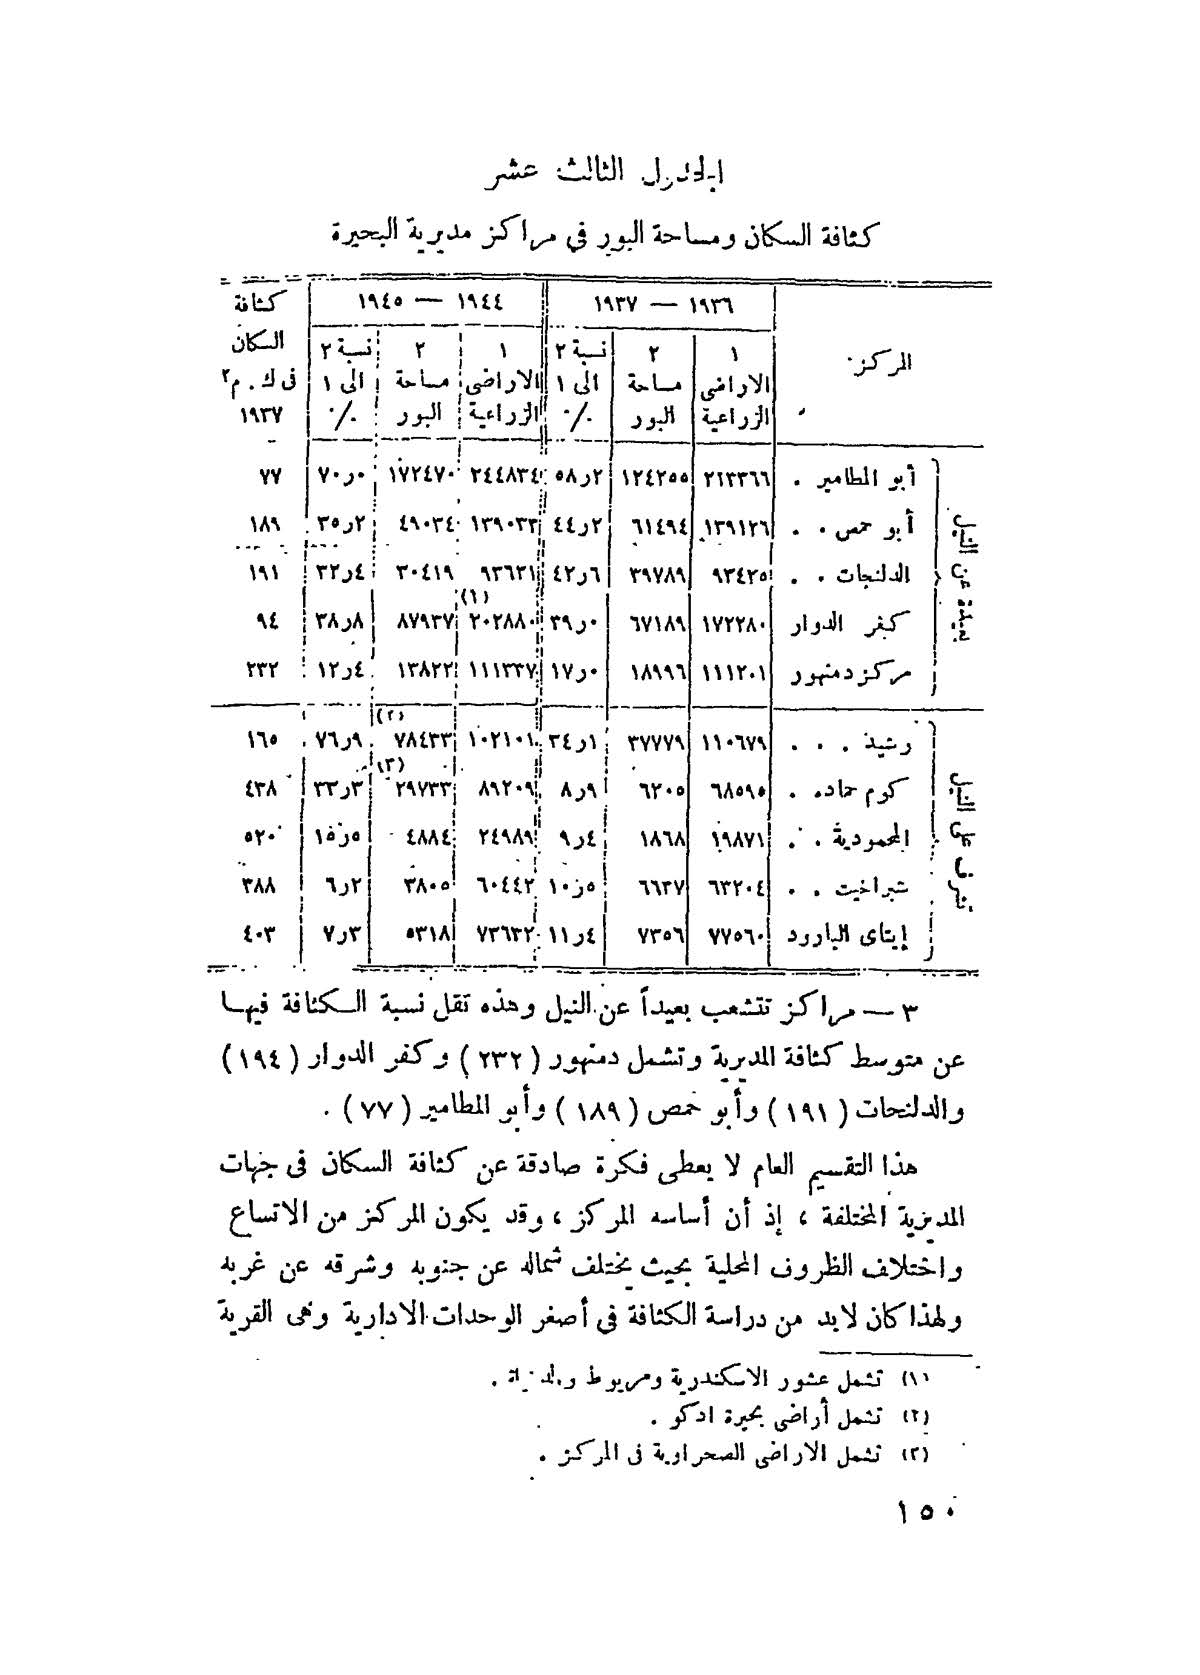 الجدول الثالث عشر
كثافة السكان ومساحة البور في مراكز مديرية البحيرة
المركز ١٩٣٦ — ١٩٣٧ ١٩٤٤ — ١٩٤٥ كثافة السكان فى ك . م٢ ١٩٣٧
١ الاراضى الزراعية ٢ مساحة البور نسبة ٢ الى ١ ٪ ١ الاراضى الزراعية ٢ مساحة البور نسبة ٢ الى ١ ٪
بعيدة عن النيل
أبو المطامير . ٢١٣٣٦٦ ١٢٤٢٥٥ ٥٨٫٢ ٢٤٤٨٣٤ ١٧٢٤٧٠ ٧٠٫٠ ٧٧
أبو حمص . . ١٣٩١٢٦ ٦١٤٩٤ ٤٤٫٢ ١٣٩٠٣٣ ٤٩٠٣٤ ٣٥٫٢ ١٨٩
الدلنجات . . ٩٣٤٢٥ ٣٩٧٨٩ ٤٢٫٦ ٩٣٦٣١ ٣٠٤١٩ ٣٢٫٤ ١٩١
كفر الدوار ١٧٢٢٨٠ ٦٧١٨٩ ٣٩٫٠ ٢٠٢٨٨٠ (١) ٨٧٩٣٧ ٣٨٫٨ ٩٤
مركز دمنهور ١١١٢٠١ ١٨٩٩٦ ١٧٫٠ ١١١٣٣٧ ١٣٨٢٢ ١٢٫٤ ٢٣٢
تشرف على النيل
رشيد . . . ١١٠٦٧٩ ٣٧٧٧٩ ٣٤٫١ ١٠٢١٠١ ٧٨٤٣٣ (٢) ٧٦٫٩ ١٦٥
كوم حماده . ٦٨٥٩٥ ٦٢٠٥ ٨٫٩ ٨٩٢٠٩ ٢٩٧٣٣ (٣) ٣٣٫٣ ٤٣٨
المحمودية . . ١٩٨٧١ ١٨٦٨ ٩٫٤ ٢٤٩٨٩ ٤٨٨٤ ١٥٫٥ ٥٢٠
شبراخيت . . ٦٣٢٠٤ ٦٦٣٧ ١٠٫٥ ٦٠٤٤٢ ٣٨٠٥ ٦٫٢ ٣٨٨
إيتاى البارود ٧٧٥٦٠ ٧٣٥٦ ١١٫٤ ٧٣٦٣٢ ٥٣١٨ ٧٫٣ ٤٠٣
٣ — مراكز تتشعب بعيداً عن النيل وهذه تقل نسبة الكثافة فيها
عن متوسط كثافة المديرية وتشمل دمنهور ( ٢٣٢ ) وكفر الدوار ( ١٩٤ )
والدلنجات ( ١٩١ ) وأبو حمص ( ١٨٩ ) وأبو المطامير ( ٧٧ ) .
هذا التقسيم العام لا يعطى فكرة صادقة عن كثافة السكان فى جهات
المديرية المختلفة ، إذ أن أساسه المركز ، وقد يكون المركز من الاتساع
واختلاف الظروف المحلية بحيث يختلف شماله عن جنوبه وشرقه عن غربه
ولهذا كان لابد من دراسة الكثافة في أصغر الوحدات الادارية وهى القرية
(١) تشمل عشور الاسكندرية ومريوط .
(٢) تشمل أراضى بحيرة ادكو .
(٣) تشمل الاراضى الصحراوية فى المركز .
١٥٠